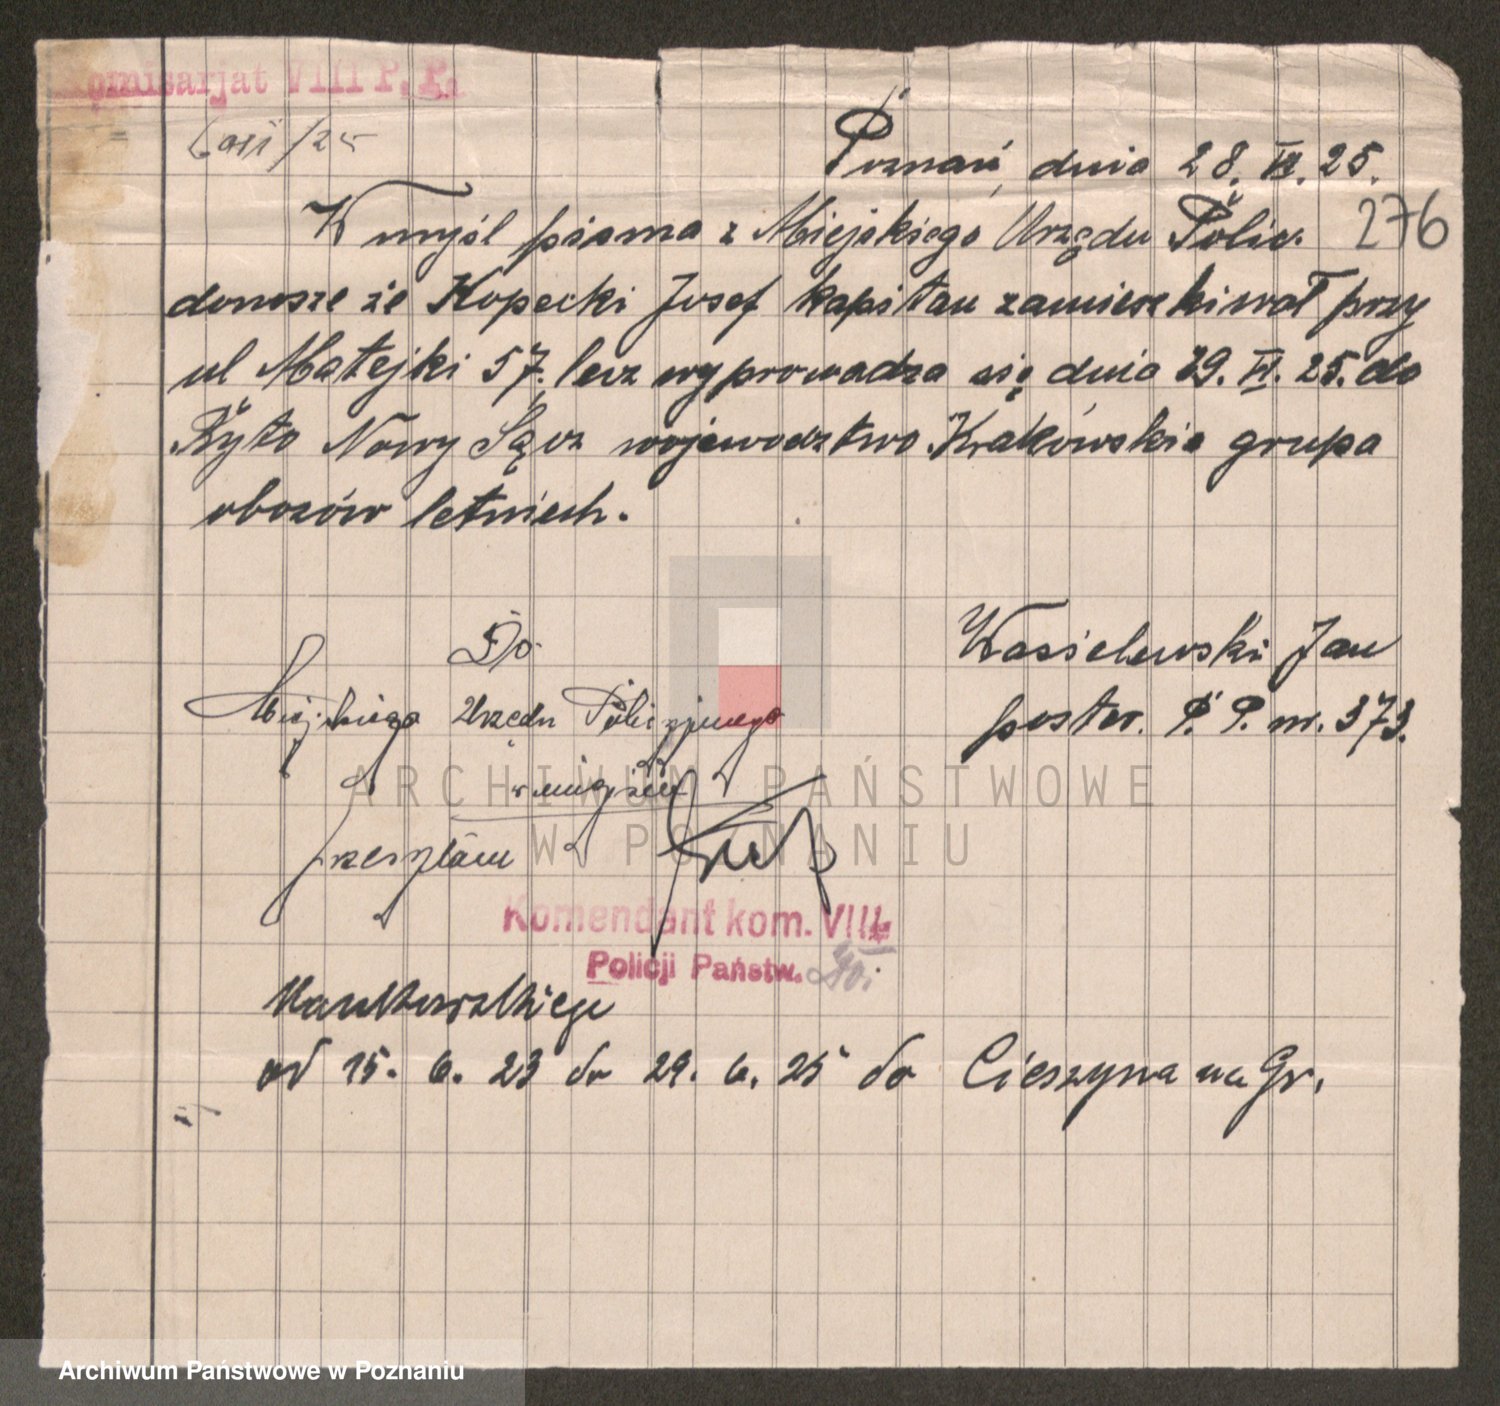 Komisarjat VIII P. P.
/25
Poznań, dnia 28. VI. 25.
276
W myśl pisma z Miejskiego Urzędu Polic.
donosze że Kopecki Josef kapitan zamieszkiwał przy
ul Matejki 57. lecz wyprowadza się dnia 29. VI. 25. do
Ryto Nowy Sącz wojewodztwo Krakówskie grupa
obozów letniech.
Wasielewski Jan
poster. P. P. nr. 373.
Do
Miejskiego Urzędu Policyjnego
w miejscu
przesyłam
Komendant kom. VIII
Policji Państw.
od 15. 6. 23 do 29. 6. 25 do Cieszyna na Gr.
ARCHIWUM PAŃSTWOWE
W POZNANIU
Archiwum Państwowe w Poznaniu